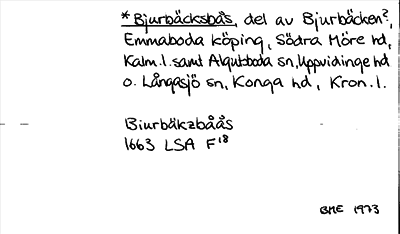 *Bjurbäcksbås, del av Bjurbäcken?,
Emmaboda köping, Södra Möre hd,
Kalm. l. samt Algutsboda sn, Uppvidinge hd
o. Långasjö sn, Konga hd, Kron. l.
Biurbäkzbåås
1663 LSA F¹⁸
BME 1973